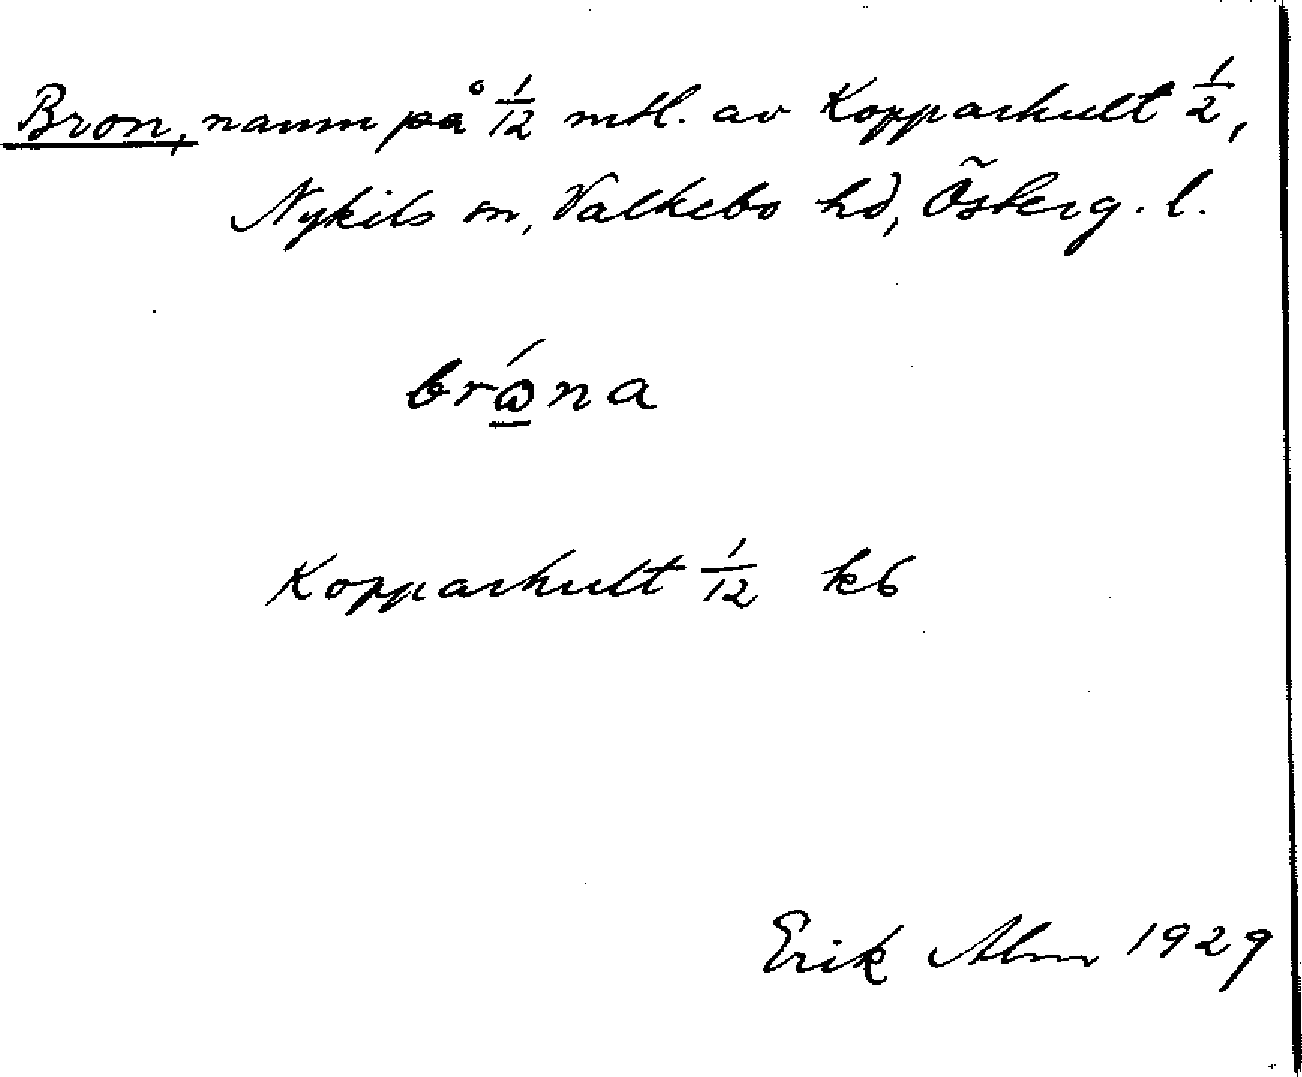 Bron, namn på 1/12 mtl. av Kopparhult 1/2,
Nykils sn, Valkebo hd, Österg. l.
brώ̲na
Kopparhult 1/12 kb
Erik Alm 1929